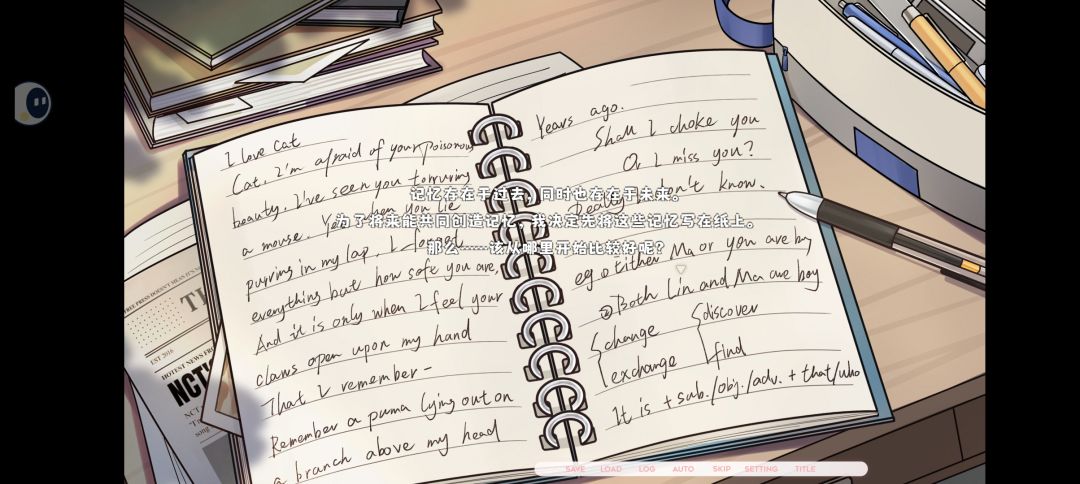 I love Cat
Cat, I'm afraid of your poisonous
beauty. I've seen you torturing
a mouse. Yet when you lie
purring in my lap, I forget
everything but how soft you are,
And it is only when I feel your
claws open upon my hand
That I remember-
Remember a puma lying out on
a branch above my head
Years ago.
Shall I choke you
Or I miss you?
Really don't know.
eg. ① Either Ma or you are boy
② Both Lin and Ma are boy
change
exchange
discover
find
It is + sub./obj./adv. + that/who
记忆存在于过去，同时也存在于未来。
为了将来能共同创造记忆，我决定先将这些记忆写在纸上。
那么……该从哪里开始比较好呢？
EST 2016
HOTEST NEWS
NCT
SAVE LOAD LOG AUTO SKIP SETTING TITLE